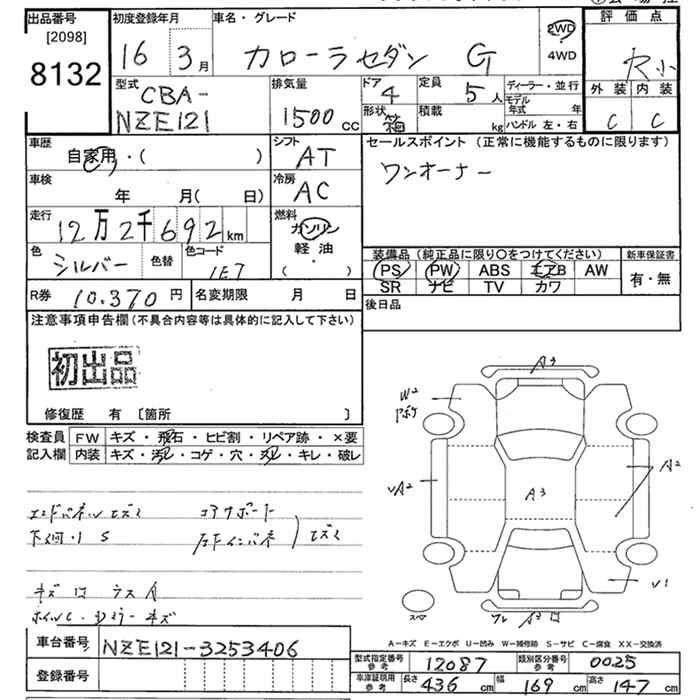 出品番号
[2098]
8132
初度登録年月
16 3月
車名・グレード
カローラセダン G
2WD・
4WD
評価点
R小
外装 内装
C C
型式
CBA-
NZE121
排気量
1500cc
ドア
4
形状
箱
定員
5人
積載
kg
ディーラー・並行
モデル年式 年
ハンドル 左・右
車歴
自家用・( )
シフト
AT
セールスポイント(正常に機能するものに限ります)
ワンオーナー
車検
年 月( 日)
冷房
AC
走行
12万2千692km
燃料
ガソリン
軽油
・( )
色
シルバー
色替
色コード
1E7
装備品(純正品に限り○をつけてください)
PS PW ABS エアB AW
SR ナビ TV カワ
新車保証書
有・無
R券 10.370円
名変期限 月 日
後日品
注意事項申告欄(不具合内容等は具体的に記入して下さい)
初出品
修復歴 有 [箇所 ]
検査員
記入欄
FW キズ・飛石・ヒビ割・リペア跡・×要
内装 キズ・汚レ・コゲ・穴・スレ・キレ・破レ
エンドパネルヒズミ
コアサポート
下回り S
ヒズミ
キズ
A3
W2
A2
A3
A2
V1
A-キズ E-エクボ U-凹み W-補修跡 S-サビ C-腐食 XX-交換済
車台番号 NZE121-3253406
登録番号
型式指定番号 参考 12087
類別区分番号 参考 0025
車庫証明用 参考 長さ 436cm 幅 169cm 高さ 147cm